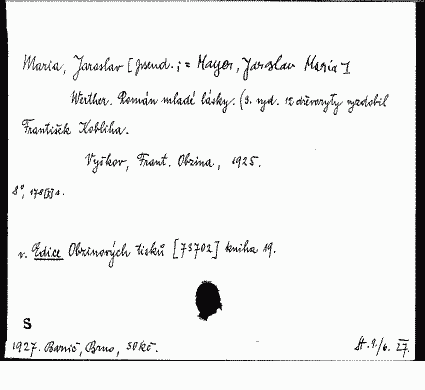 Maria, Jaroslav [pseud.; = Mayer, Jaroslav Maria]
Werther. Román mladé lásky. (3. vyd. 12 dřevoryty vyzdobil
František Kobliha.
Vyškov, Frant. Obzina, 1925.
8°, 178 s.
v. Edice Obzinových tisků [73702] kniha 19.
S
1927. Barvič, Brno, 50 Kč.
27.